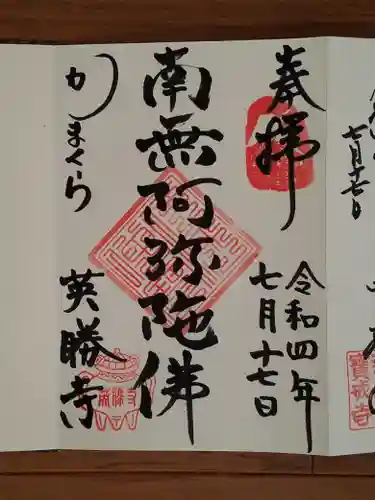 七月十七日
寶戒寺
奉拝
令和四年
七月十七日
南無阿弥陀佛
かまくら
英勝寺